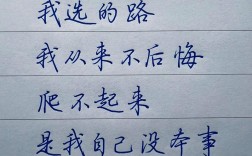 我选的路
我从来不后悔
爬不起来
是我自己没本事